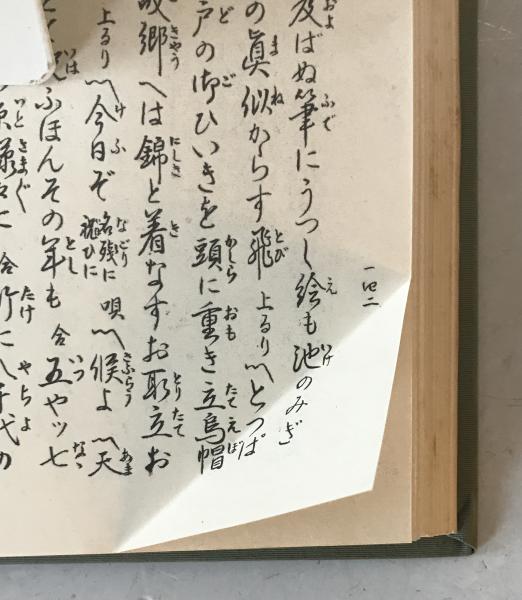 及ばぬ筆にうつし絵も池のみぎ
の眞似からす飛 上るり〽とつぱ
戸の御ひいきを頭に重き立烏帽
故郷へは錦と着なすお取立お
上るり〽今日ぞ 名残に 穐ひに 唄〽候よ〽天
ふほんその年も 合 五やッ七
合 竹に八千代の
一四二